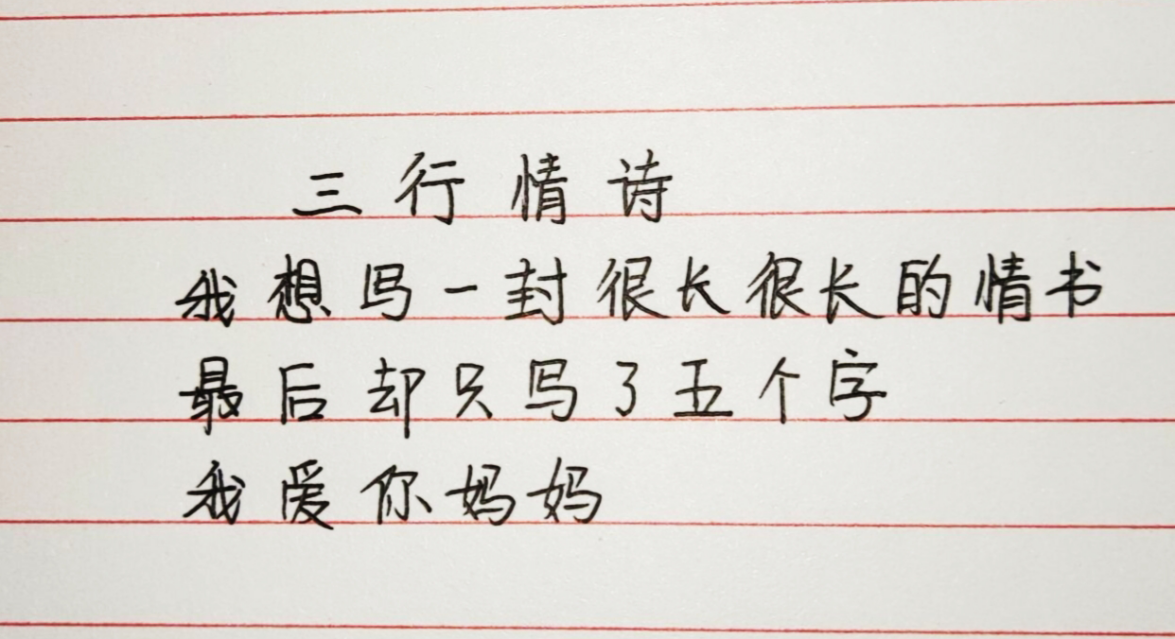 三行情诗
我想写一封很长很长的情书
最后却只写了五个字
我爱你妈妈